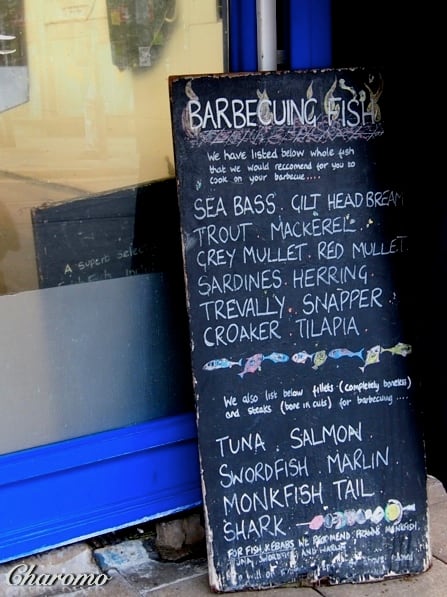 BARBECUING FISH
We have listed below whole fish
that we would reccomend for you to
cook on your barbecue ....
SEA BASS . GILT HEAD BREAM
TROUT . MACKEREL .
GREY MULLET . RED MULLET .
SARDINES . HERRING .
TREVALLY . SNAPPER .
CROAKER . TILAPIA .
We also list below fillets (completely boneless)
and steaks (bone in cuts) for barbecuing ....
TUNA . SALMON .
SWORDFISH . MARLIN .
MONKFISH TAIL .
SHARK .
FOR FISH KEBABS WE MONKFISH,
TUNA, SWORDFISH AND MARLIN
A superb selec
Charomo